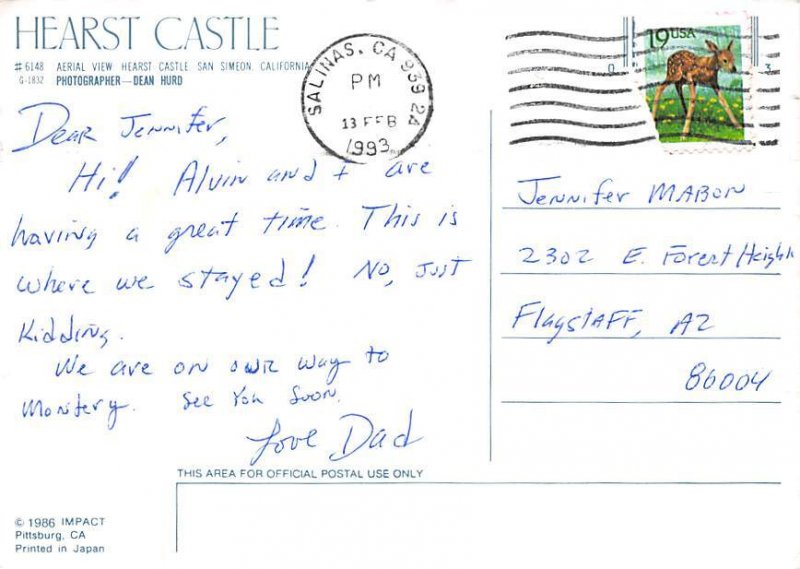 HEARST CASTLE
#6148 AERIAL VIEW HEARST CASTLE SAN SIMEON, CALIFORNIA
G-1832 PHOTOGRAPHER—DEAN HURD
SALINAS, CA 939 24
PM
13 FEB
1993
19 USA
03
Dear Jennifer,
Hi! Alvin and I are
having a great time. This is
where we stayed! No, Just
Kidding.
We are on our way to
Montery. See You Soon.
Love Dad
Jennifer MABON
2302 E. Forest Heights
FlagstAFF, AZ
86004
THIS AREA FOR OFFICIAL POSTAL USE ONLY
© 1986 IMPACT
Pittsburg, CA
Printed in Japan